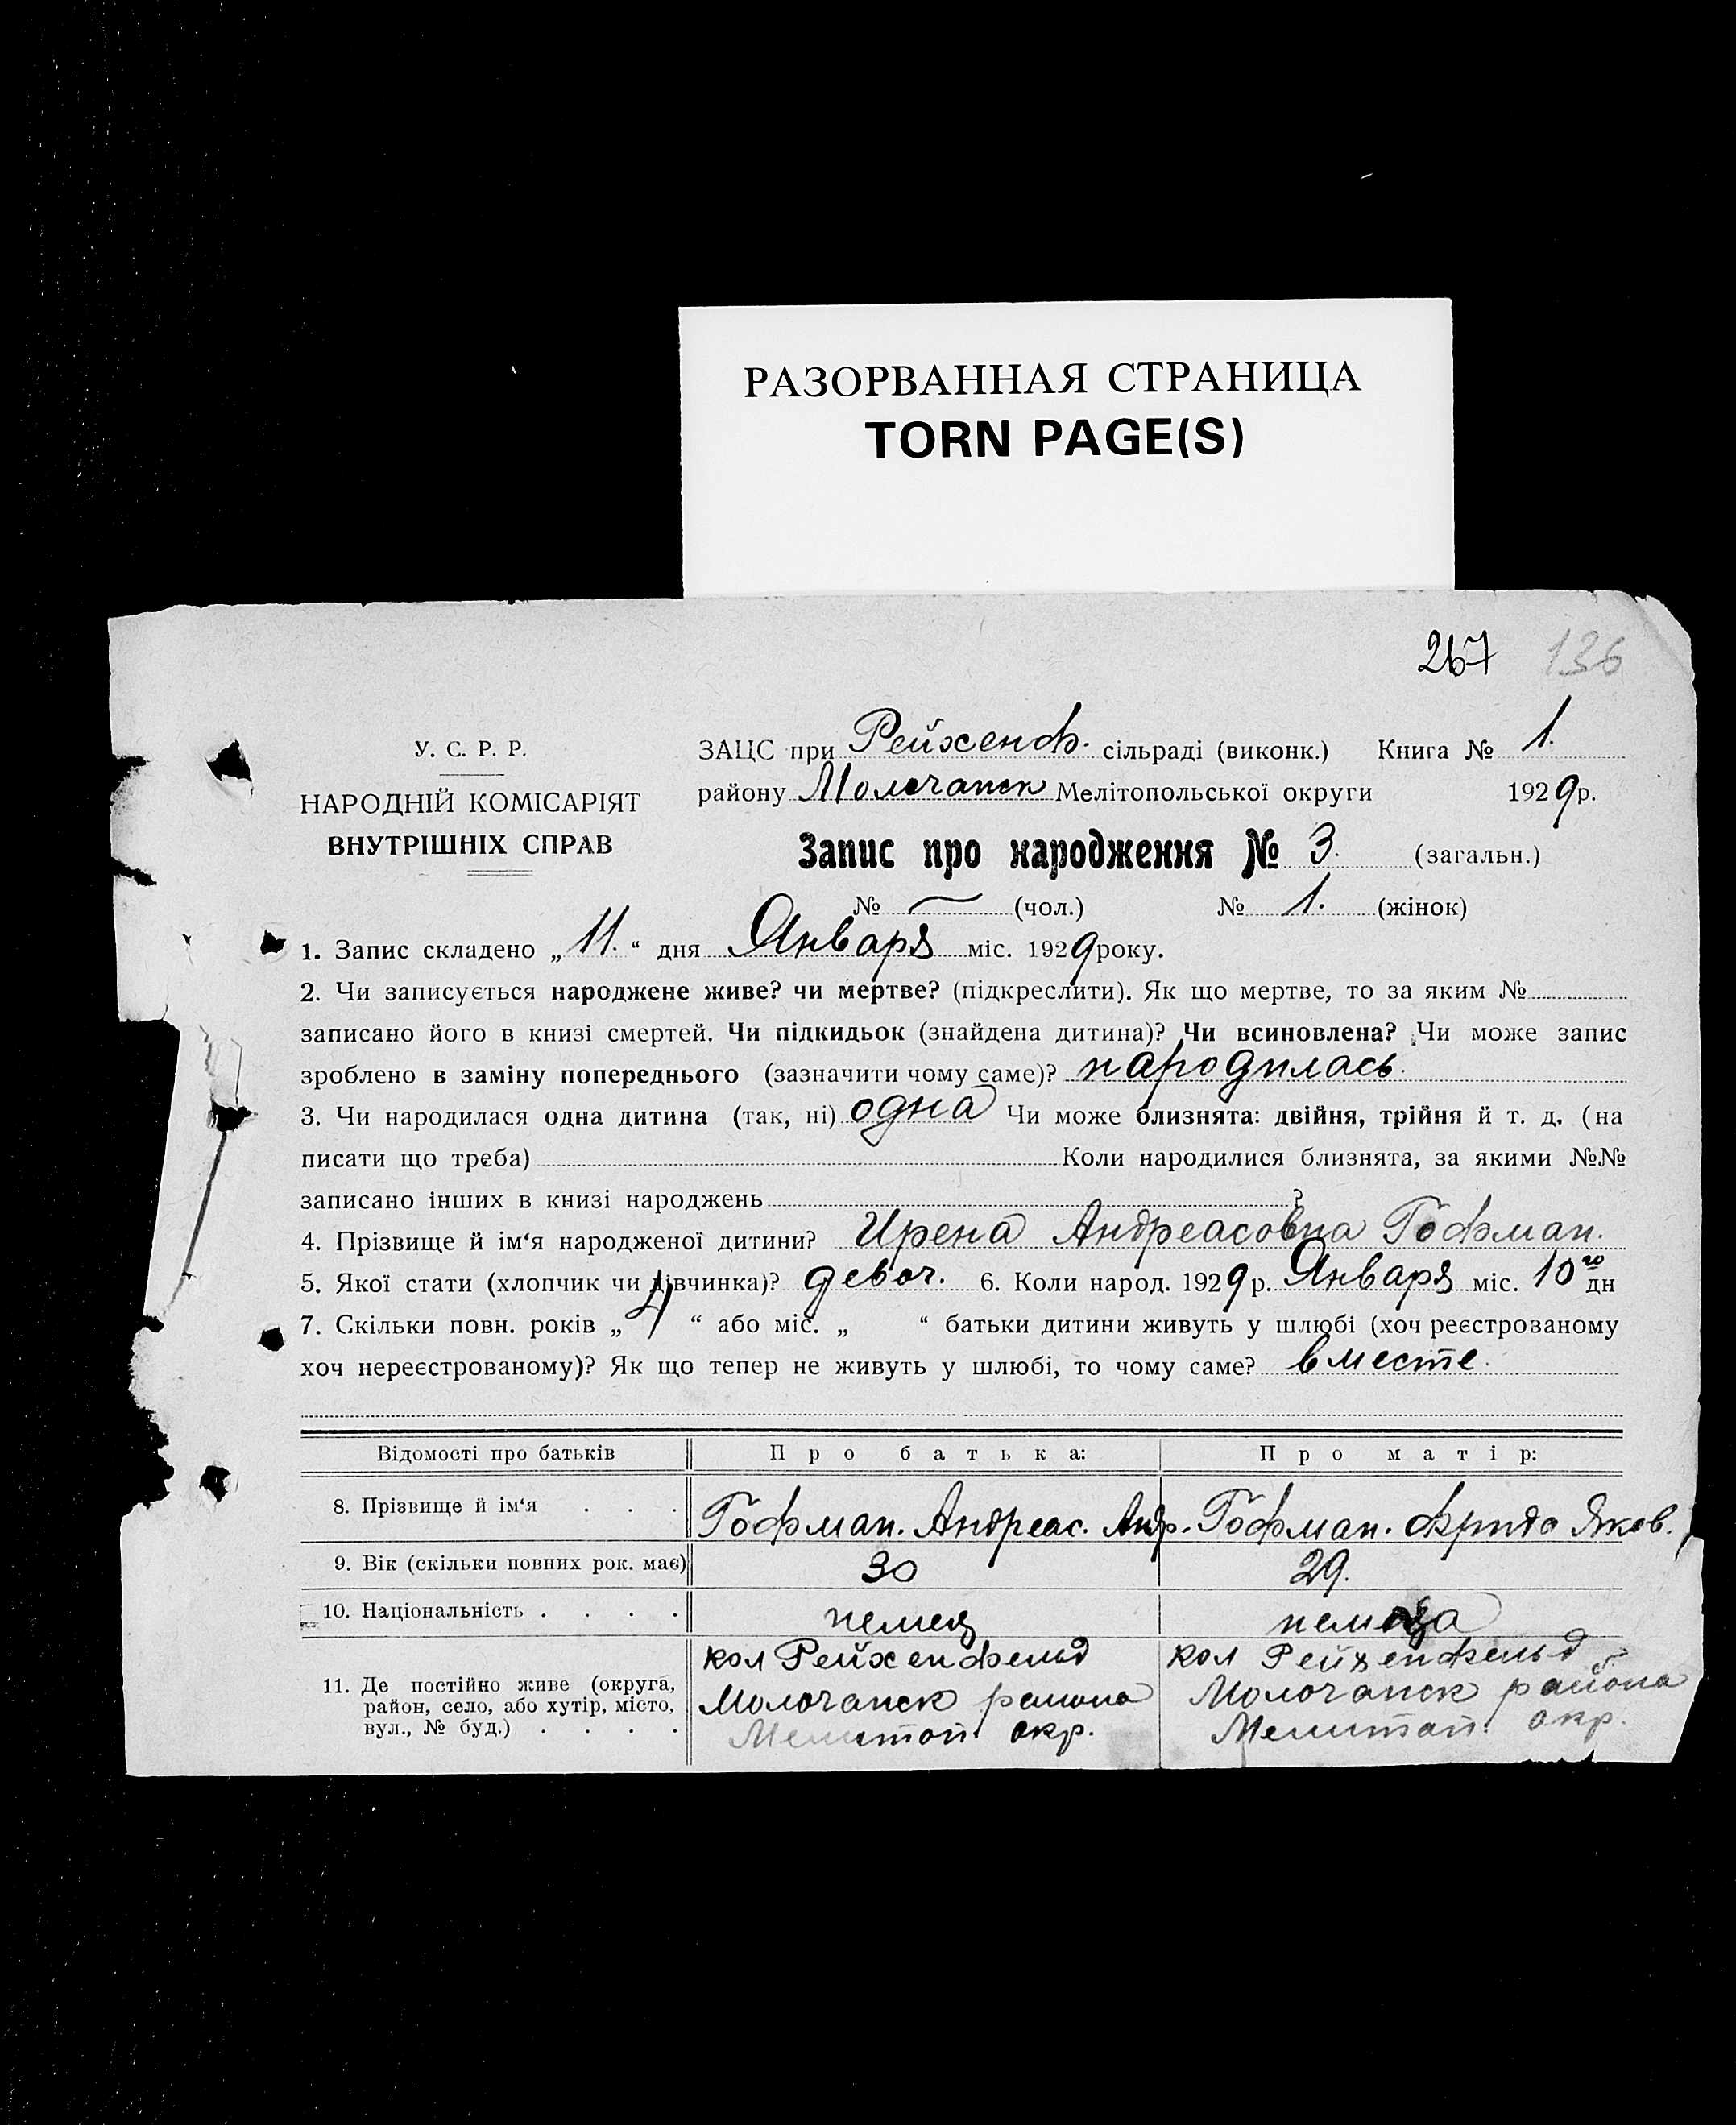 РАЗОРВАННАЯ СТРАНИЦА
TORN PAGE(S)
267 136
У. С. Р. Р.
НАРОДНІЙ КОМІСАРІЯТ
ВНУТРІШНІХ СПРАВ
ЗАЦС при Рейхенф. сільраді (виконк.) Книга № 1.
району Молочанск Мелітопольської округи 1929р.
Запис про народження № 3. (загальн.)
№ — (чол.) № 1. (жінок)
1. Запис складено „11.“ дня Января міс. 1929 року.
2. Чи записується народжене живе? чи мертве? (підкреслити). Як що мертве, то за яким №
записано його в книзі смертей. Чи підкидьок (знайдена дитина)? Чи всиновлена? Чи може запис
зроблено в заміну попереднього (зазначити чому саме)? народилась.
3. Чи народилася одна дитина (так, ні) одна Чи може близнята: двійня, трійня й т. д. (на
писати що треба) Коли народилися близнята, за якими №№
записано інших в книзі народжень ?
4. Прізвище й ім‘я народженої дитини? Ирена Андреасовна Гофман.
5. Якої стати (хлопчик чи дівчинка)? девоч. 6. Коли народ. 1929 р. Января міс. 10го дн
7. Скільки повн. років „ 4 “ або міс. „ “ батьки дитини живуть у шлюбі (хоч реєстрованому
хоч нереєстрованому)? Як що тепер не живуть у шлюбі, то чому саме? вместе.
Відомості про батьків Про батька: Про матір:
8. Прізвище й ім‘я . . . Гофман. Андреас. Анд. Гофман. Фрида Яков.
9. Вік (скільки повних рок. має) 30 29.
10. Національність . . . . немец немка
11. Де постійно живе (округа, район, село, або хутір, місто, вул., № буд.) . . . .
кол Рейхенфельд
Молочанск района
Мелитоп. окр.
кол Рейхенфельд
Молочанск района
Мелитоп. окр.